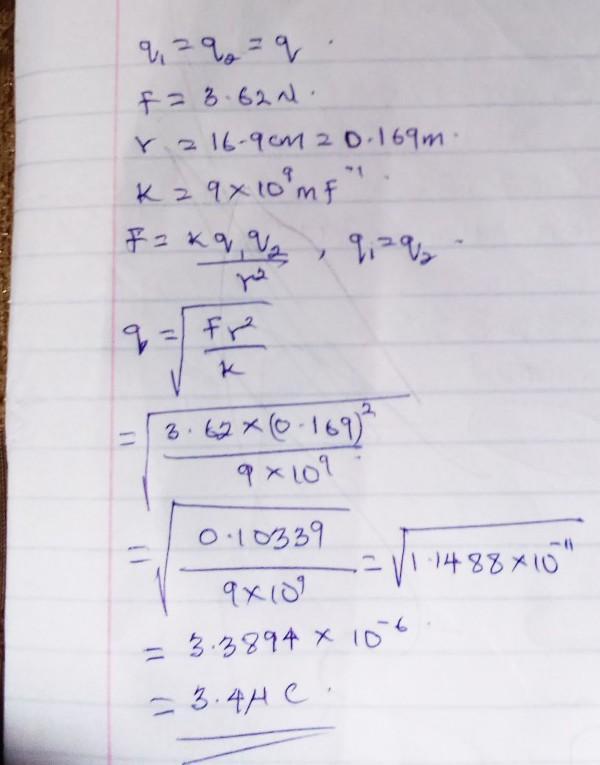 q₁ = q₂ = q .
F = 3.62N .
r = 16.9cm = 0.169m .
K = 9×10⁹ mF⁻¹ .
F = Kq₁q₂/r² , q₁=q₂ .
q = √(Fr²/K)
= √(3.62×(0.169)²/9×10⁹) .
= √(0.10339/9×10⁹) = √(1.1488×10⁻¹¹)
= 3.3894 × 10⁻⁶ .
= 3.4μC .